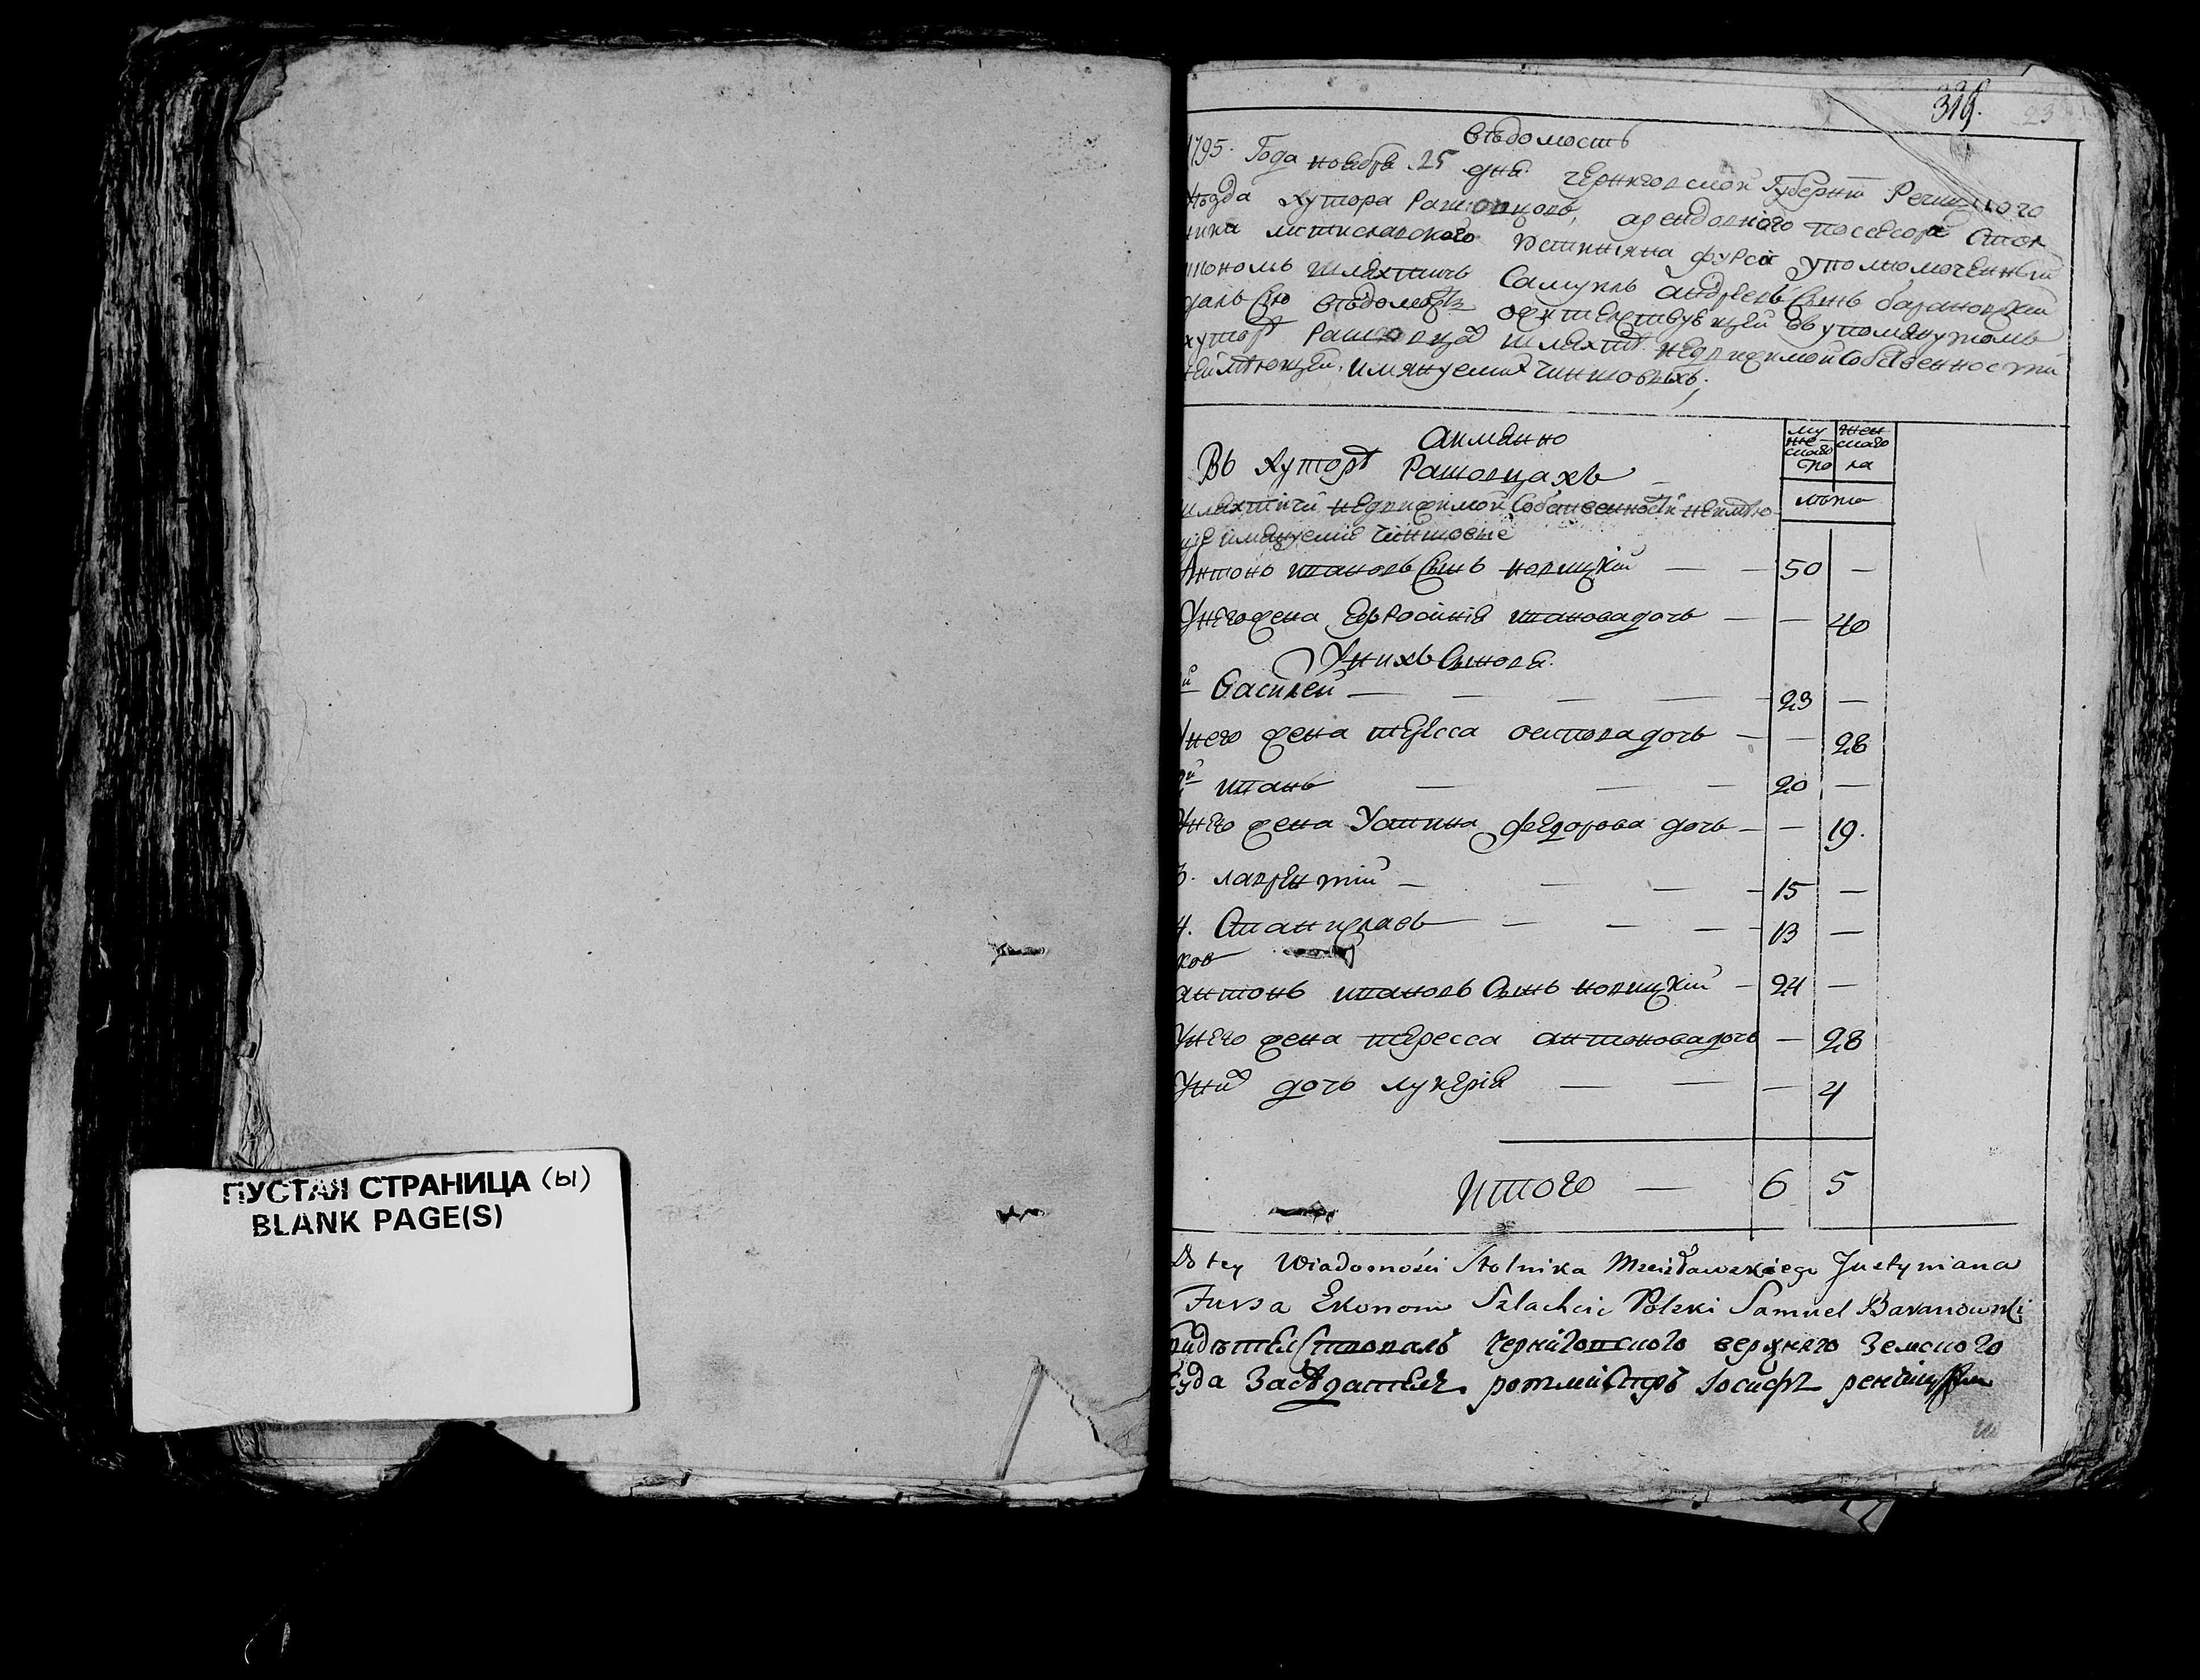 ПУСТАЯ СТРАНИЦА (ы)
BLANK PAGE(S)
23
вѣдомость
1795. Года ноября 25 дня Черниговской Губернѣи Речицкого
уѣзда хутора Рашовцовъ, арендовного посесора Стол
ника мстиславского Юстинияна фурси уполномоченный
економъ шляхтичь Самуиль андреевъ Сынъ барановский
далъ Сію вѣдомость о жителствующей въ упомянутомъ
хуторѣ Рашовцахъ шляхтѣ недвижимой Собственности
неимѣющей, имянуемихъ чиншовыхъ;
аимянно
Въ хуторѣ Рашовцахъ
му же скаго по
жен скаго ла
лѣта
шляхтичи недвижимой Собственности неимѣю
щіе имянуемие чиншовые
Антонъ ивановъ Сынъ новицкий — 50 —
Унего жена Ефросиния иванова дочь — — 40
Унихъ Сыновя
й Василей — 23 —
Унего жена тересса осипова дочь — — 28
2й иванъ — 20 —
Унего жена Устина федорова дочь — — 19.
3. лаврентий — 15 —
4. Станиславъ — 13 —
антонъ ивановъ Сынъ новицкий — 24 —
Унего жена тересса антонова дочь — 28
Унихъ дочь лукерія — — 4
Итого — 6 5
Do tey Wiadomości Stolnika Mścisławskiego Justyniana
Fursa Ekonom Szlachcic Polski Samuel Baranowski
Свидѣтелствовалъ Черниговского верхнего Земского
Суда Засѣдатель ротмистръ Іосифъ